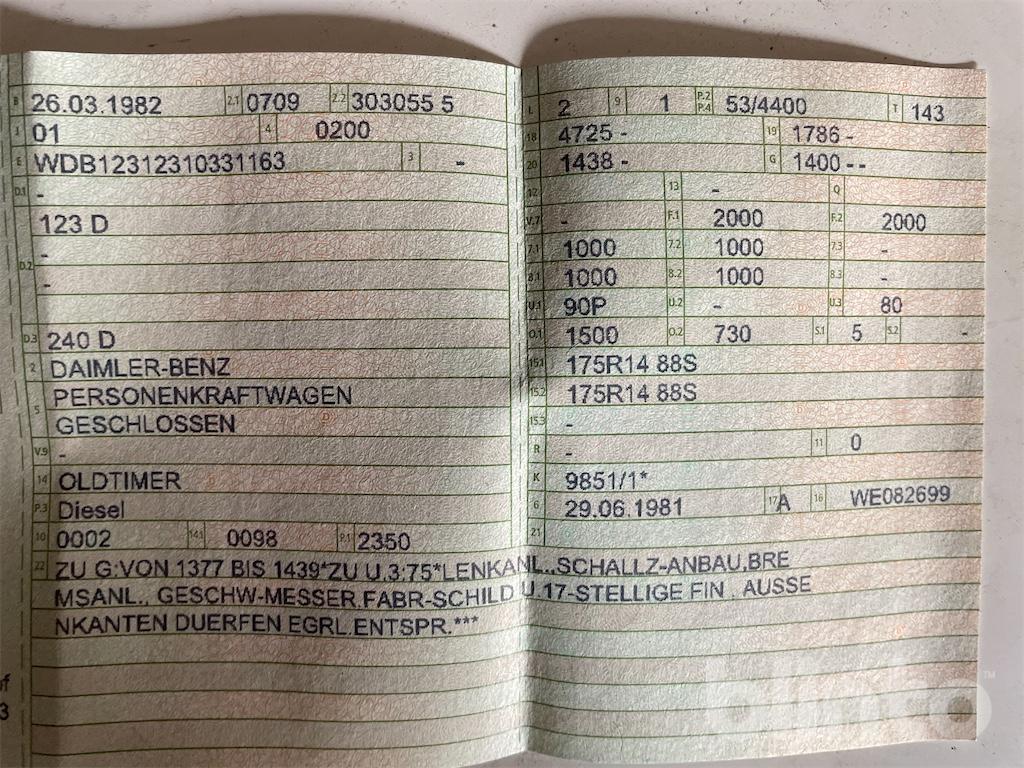 B 26.03.1982 2.1 0709 2.2 303055 5
J 01 4 0200
E WDB12312310331163 3 -
D.1 -
123 D
-
D.2 -
D.3 240 D
2 DAIMLER-BENZ
PERSONENKRAFTWAGEN
5 GESCHLOSSEN
V.9 -
14 OLDTIMER
P.3 Diesel
10 0002 14.1 0098 P.1 2350
L 2 9 1 P.2 P.4 53/4400 T 143
18 4725 - 19 1786 -
20 1438 - G 1400 - -
12 13 - Q
V.7 - F.1 2000 F.2 2000
7.1 1000 7.2 1000 7.3 -
8.1 1000 8.2 1000 8.3 -
U.1 90P U.2 - U.3 80
O.1 1500 O.2 730 S.1 5 S.2 -
15.1 175R14 88S
15.2 175R14 88S
15.3 -
R - 11 0
K 9851/1*
6 29.06.1981 17 A 16 WE082699
21
22 ZU G:VON 1377 BIS 1439*ZU U.3:75*LENKANL.,SCHALLZ-ANBAU,BRE
MSANL., GESCHW-MESSER,FABR-SCHILD U.17-STELLIGE FIN , AUSSE
NKANTEN DUERFEN EGRL.ENTSPR.***
3